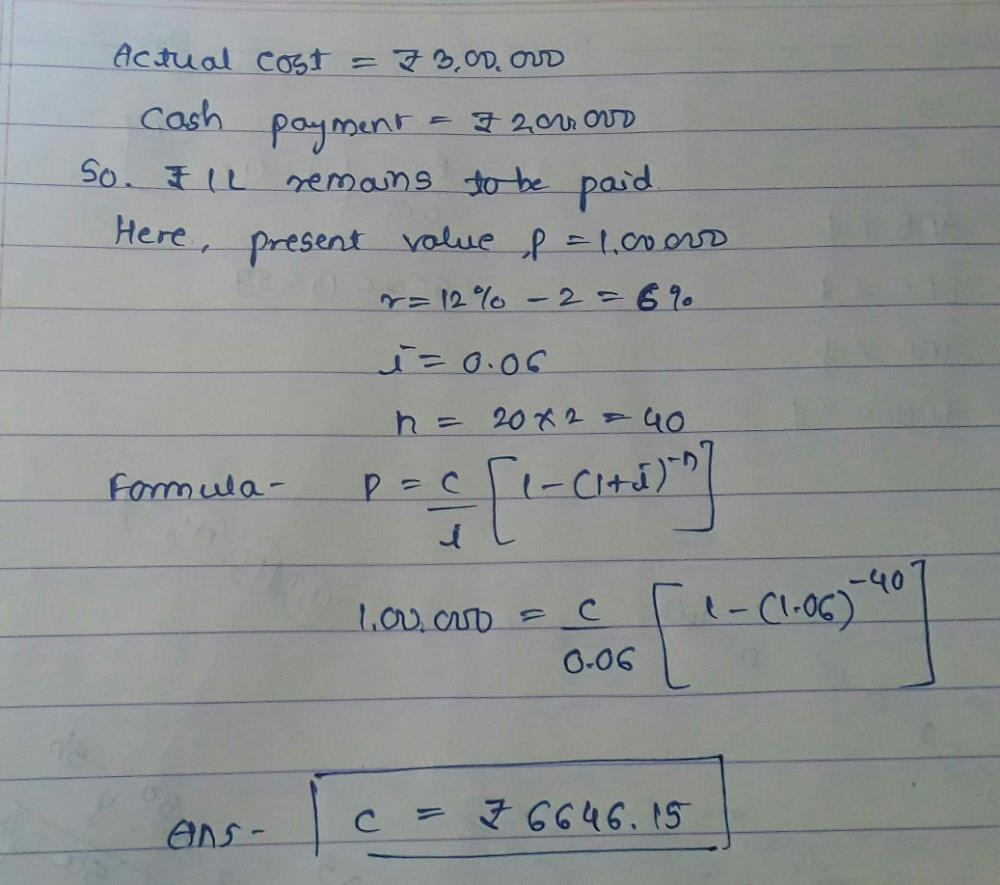 Actual cost = ₹ 3,00,000
Cash payment = ₹ 2,00,000
So. ₹ 1L remains to be paid.
Here, present value, P = 1,00,000
r = 12% - 2 = 6%
i = 0.06
n = 20 x 2 = 40
Formula - P = C/i [1-(1+i)^-n]
1,00,000 = C/0.06 [1-(1.06)^-40]
Ans - C = ₹ 6646.15